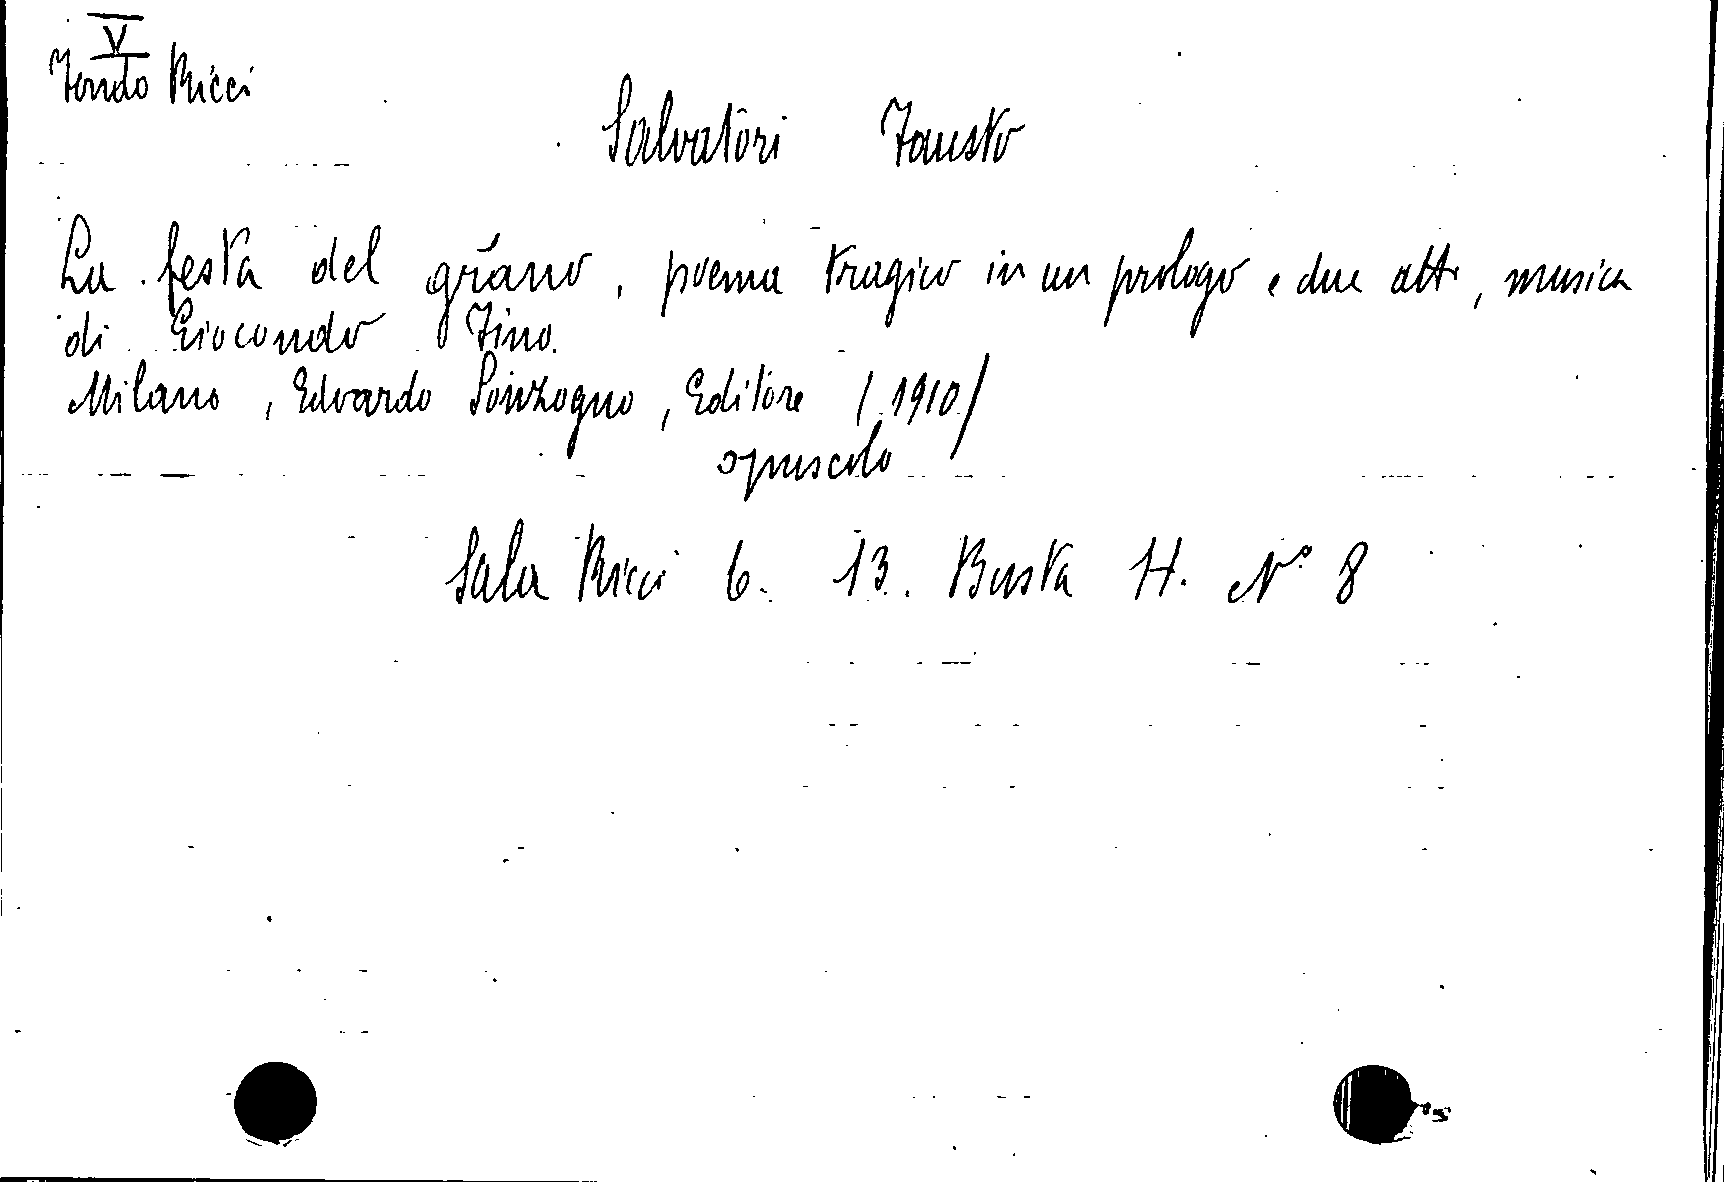 V
Fondo Ricci
Salvatori Fausto
La festa del grano, poema tragico in un prologo e due atti, musica
di Giocondo Fino.
Milano, Edoardo Sonzogno, Editore (1910)
opuscolo
Sala Ricci 6. 13. Busta H. N° 8